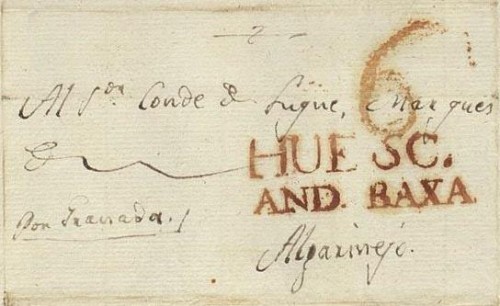 6
Al Sor. Conde de Luque, Marques
de
HUESC.
AND. BAXA
Por Granada.
Algarinejo.